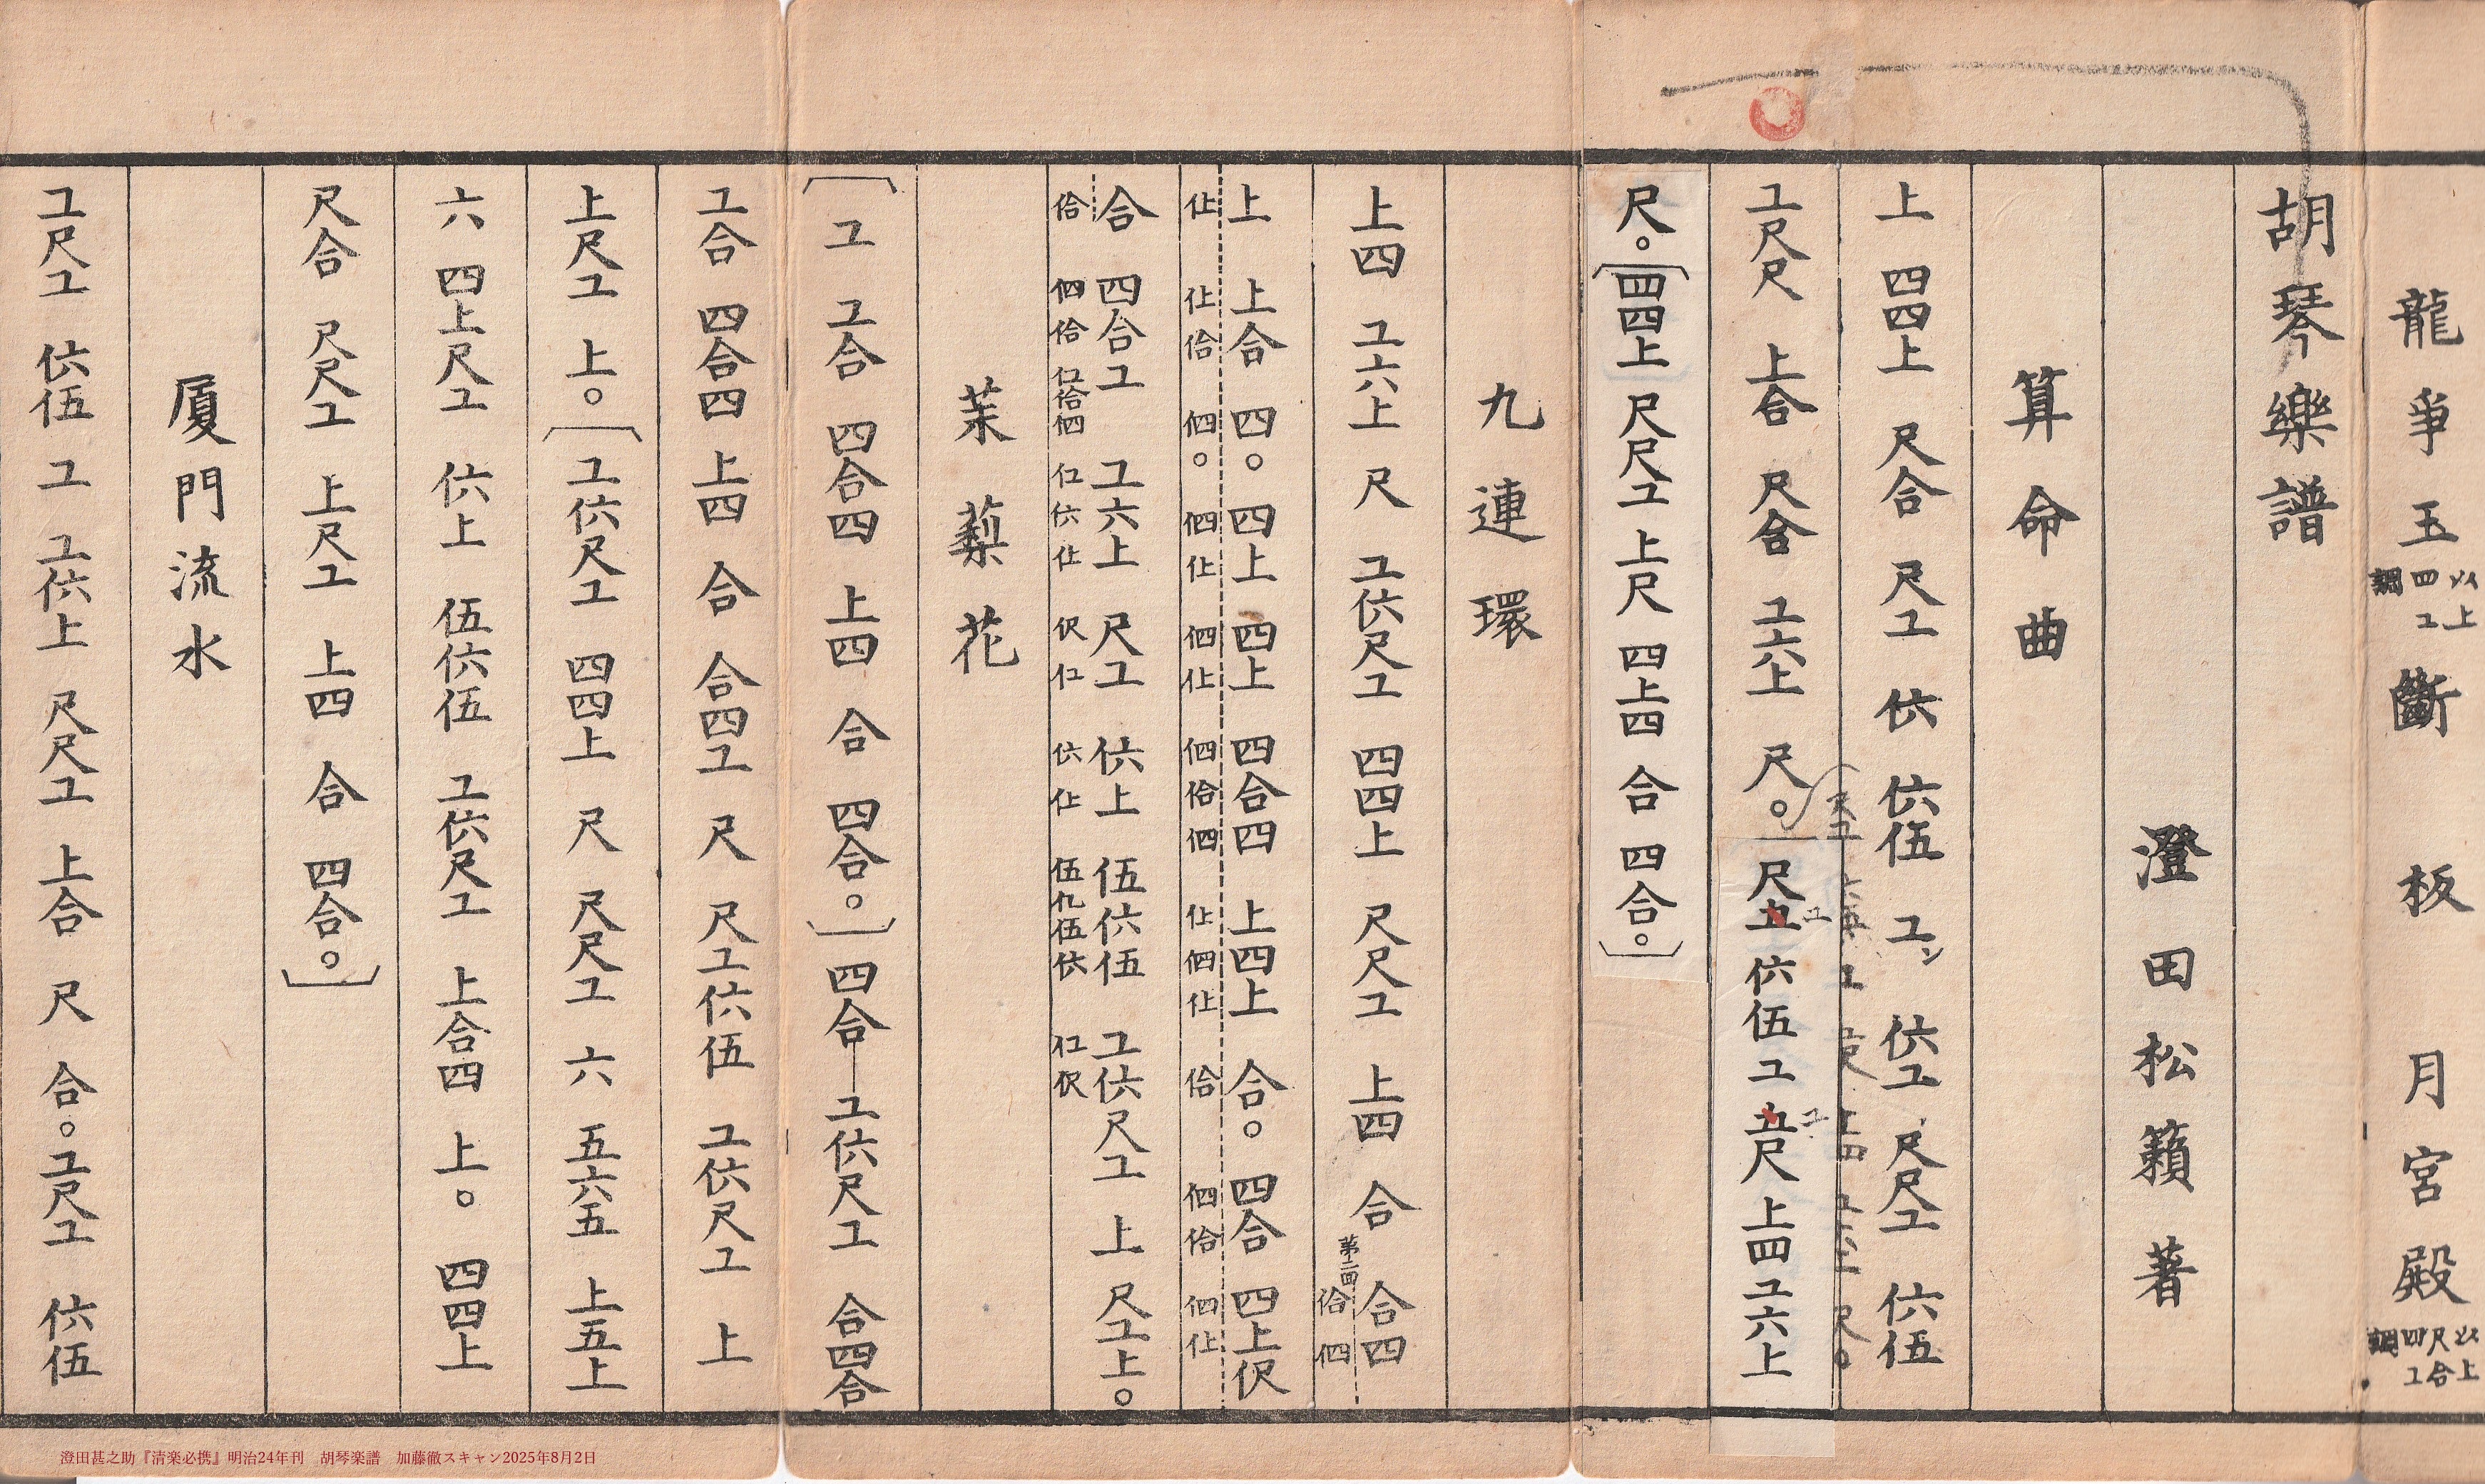 龍爭玉 以上四工調 斷板 月宮殿 以上尺合四工調
胡琴樂譜
澄田松籟著
算命曲
上 四四上 尺合 尺工 伬 伬伍 工 伬工 尺尺工 伬伍
工尺尺 上合 尺合 工六上 尺。尺五伬伍工五尺上四工六上
工
工
尺。四四上 尺尺工 上尺 四上四 合 四合。
九連環
上四 工六上 尺 工伬尺工 四四上 尺尺工 上四 合 合四
第二面 佮 佃
上 上合 四。四上 四上 四合四 上四上 合。四合 四上伬
仩 仩佮 佃。佃仩 佃仩 佃佮佃 仩佃仩 佮 佃佮 佃仩
合 四合工 工六上 尺工 伬上 伍伬伍 工伬尺工 上 尺工上。
茉莉花
工 工合 四合四 上四 合 四合。四合—工伬尺工 合四合
工合 四合四 上四 合 合四工 尺 尺工伬伍 工伬尺工 上
上尺工 上。工伬尺工 四四上 尺 尺尺工 六 五六五 上五上
六 四上尺工 伬上 伍伬伍 工伬尺工 上合四 上。四四上
尺合 尺尺工 上尺工 上四 合 四合。
厦門流水
工尺工 伬伍 工 工伬上 尺尺工 上合 尺 合。工尺工 伬伍
澄田甚之助『清楽必携』明治24年刊　胡琴楽譜　加藤徹スキャン2025年8月2日